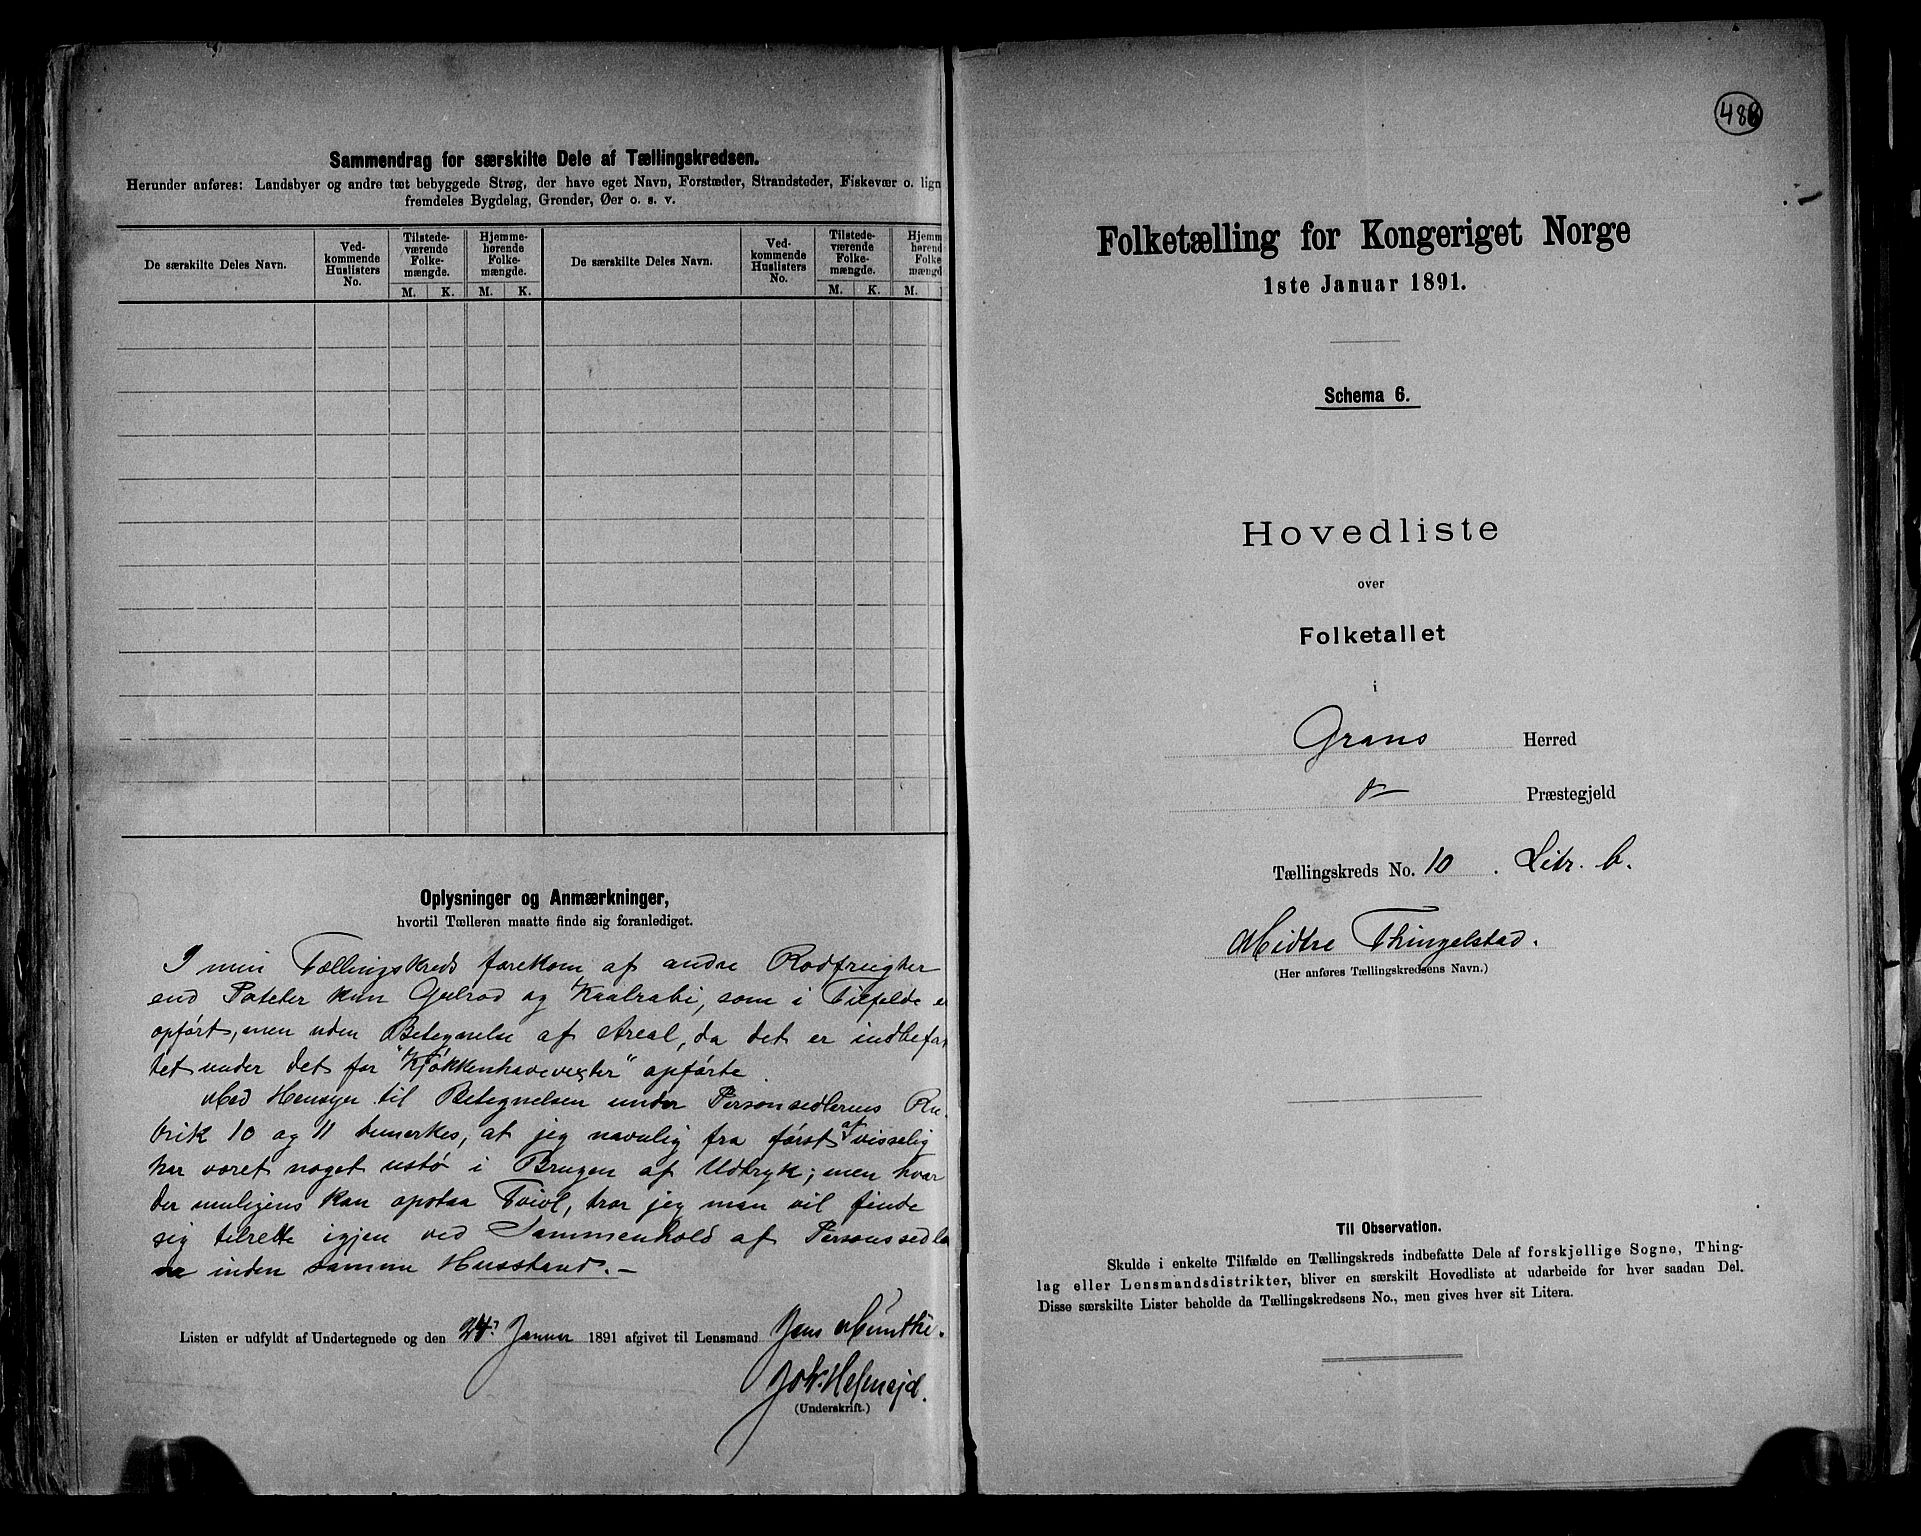 Sammendrag for særskilte Dele af Tællingskredsen.
Herunder anføres: Landsbyer og andre tæt bebyggede Strøg, der have eget Navn, Forstæder, Strandsteder, Fiskevær o. lign
fremdeles Bygdelag, Grender, Øer o. s. v.
De særskilte Deles Navn.
Ved-
kommende
Huslisters
No.
Tilstede-
værende
Folke-
mængde.
Hjemme-
hørende
Folke-
mængde.
M. K. M. K.
De særskilte Deles Navn.
Ved-
kommende
Huslisters
No.
Tilstede-
værende
Folke-
mængde.
Hjemm
hørend
Folke
mængd
M. K. M.
Oplysninger og Anmærkninger,
hvortil Tælleren maatte finde sig foranlediget.
I min Tællingskreds forekom af andre Rodfrugter
end Poteter kun Gulrod og Kaalrabi, som i Tilfelde er
opført, men uden Betegnelse af Areal, da det er indbefat
tet under det for "Kjøkkenhavevexter" opførte
Med Hensyn til Betegnelsen under Personsedlernes Ru-
brik 10 og 11 bemerkes, at jeg navnlig fra først af visselig
har været noget ustø i Brugen af Udtryk; men hvor
der muligens kan opstaa Tvivl, tror jeg man vil finde
sig tilrette igjen ved Sammenhold af Personssedle
inden samme Husstand. —
Listen er udfyldt af Undertegnede og den 24 Januar 1891 afgivet til Lensmand Jens Munthe.
(Underskrift.)
488
Folketælling for Kongeriget Norge
1ste Januar 1891.
Schema 6.
Hovedliste
over
Folketallet
i
Grans Herred
Præstegjeld
Tællingskreds No. 10 . Litr. b.
Midtre Thingelstad.
(Her anføres Tællingskredsens Navn.)
Til Observation.
Skulde i enkelte Tilfælde en Tællingskreds indbefatte Dele af forskjellige Sogne, Thing-
lag eller Lensmandsdistrikter, bliver en særskilt Hovedliste at udarbeide for hver saadan Del.
Disse særskilte Lister beholde da Tællingskredsens No., men gives hver sit Litera.